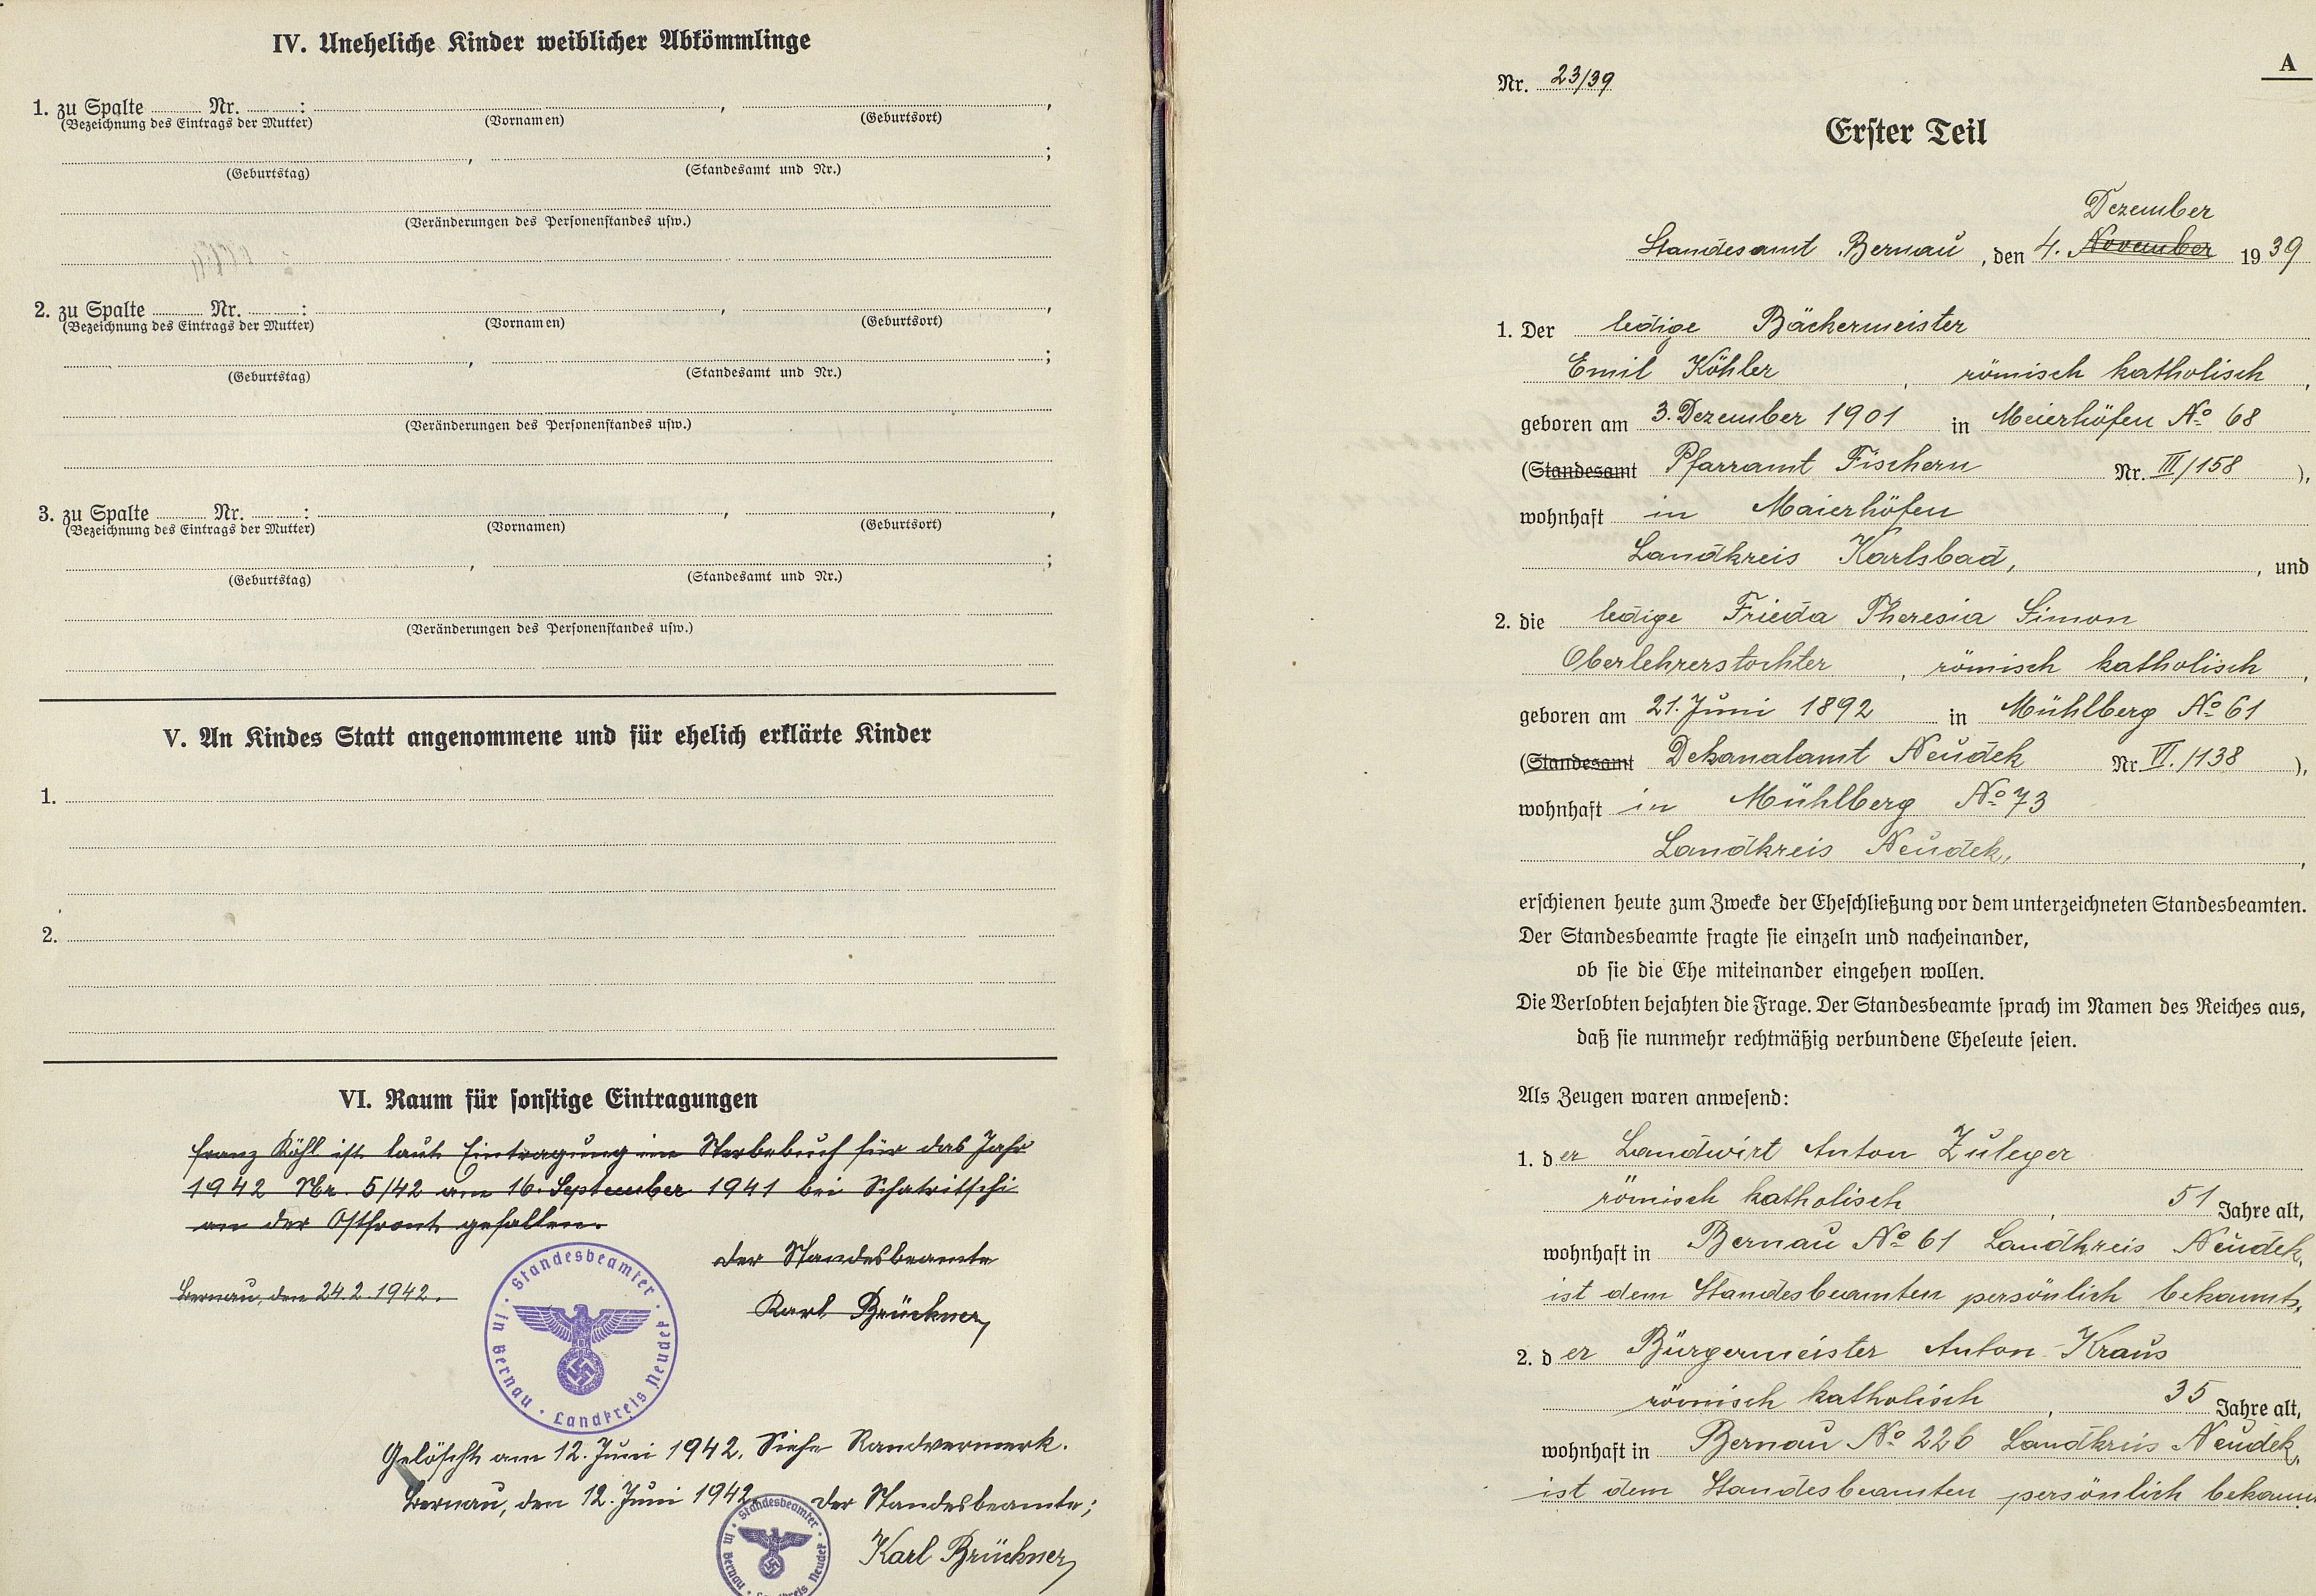 IV. Uneheliche Kinder weiblicher Abkömmlinge
1. zu Spalte Nr. : , ,
(Bezeichnung des Eintrags der Mutter) (Vornamen) (Geburtsort)
, ;
(Geburtstag) (Standesamt und Nr.)
(Veränderungen des Personenstandes usw.)
2. zu Spalte Nr. : , ,
(Bezeichnung des Eintrags der Mutter) (Vornamen) (Geburtsort)
, ;
(Geburtstag) (Standesamt und Nr.)
(Veränderungen des Personenstandes usw.)
3. zu Spalte Nr. : , ,
(Bezeichnung des Eintrags der Mutter) (Vornamen) (Geburtsort)
, ;
(Geburtstag) (Standesamt und Nr.)
(Veränderungen des Personenstandes usw.)
V. An Kindes Statt angenommene und für ehelich erklärte Kinder
1.
2.
VI. Raum für sonstige Eintragungen
Franz Köhl ist laut Eintragung im Sterbebuch für das Jahr
1942 Nr. 5/42 am 16. September 1941 bei Schatritschi
an der Ostfront gefallen.
Der Standesbeamte
Bernau, den 24.2.1942.
Karl Brückner
Standesbeamter in Bernau · Landkreis Neudek
Gelöscht am 12. Juni 1942. Siehe Randvermerk.
Bernau, den 12. Juni 1942. Der Standesbeamte;
Standesbeamter in Bernau · Landkreis Neudek
Karl Brückner
A
Nr. 23/39
Erster Teil
Dezember
Standesamt Bernau, den 4. November 1939
1. Der ledige Bäckermeister
Emil Köhler, römisch katholisch,
geboren am 3. Dezember 1901 in Meierhöfen No 68
(Standesamt Pfarramt Fischern Nr. III/158),
wohnhaft in Maierhöfen
Landkreis Karlsbad, , und
2. die ledige Frieda Theresia Simon
Oberlehrerstochter, römisch katholisch,
geboren am 21. Juni 1892 in Mühlberg No 61
(Standesamt Dekanalamt Neudek Nr. VI./138),
wohnhaft in Mühlberg No 73
Landkreis Neudek, ,
erschienen heute zum Zwecke der Eheschließung vor dem unterzeichneten Standesbeamten.
Der Standesbeamte fragte sie einzeln und nacheinander,
ob sie die Ehe miteinander eingehen wollen.
Die Verlobten bejahten die Frage. Der Standesbeamte sprach im Namen des Reiches aus,
daß sie nunmehr rechtmäßig verbundene Eheleute seien.
Als Zeugen waren anwesend:
1. der Landwirt Anton Zuleger
römisch katholisch, 51 Jahre alt,
wohnhaft in Bernau No 61 Landkreis Neudek,
ist dem Standesbeamten persönlich bekannt,
2. der Bürgermeister Anton Kraus
römisch katholisch, 35 Jahre alt,
wohnhaft in Bernau No 226 Landkreis Neudek,
ist dem Standesbeamten persönlich bekann